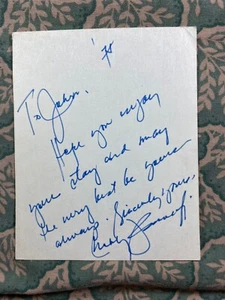 To John.
Hope you enjoy
your stay and may
the very best be yours
always. Sincerely yours,